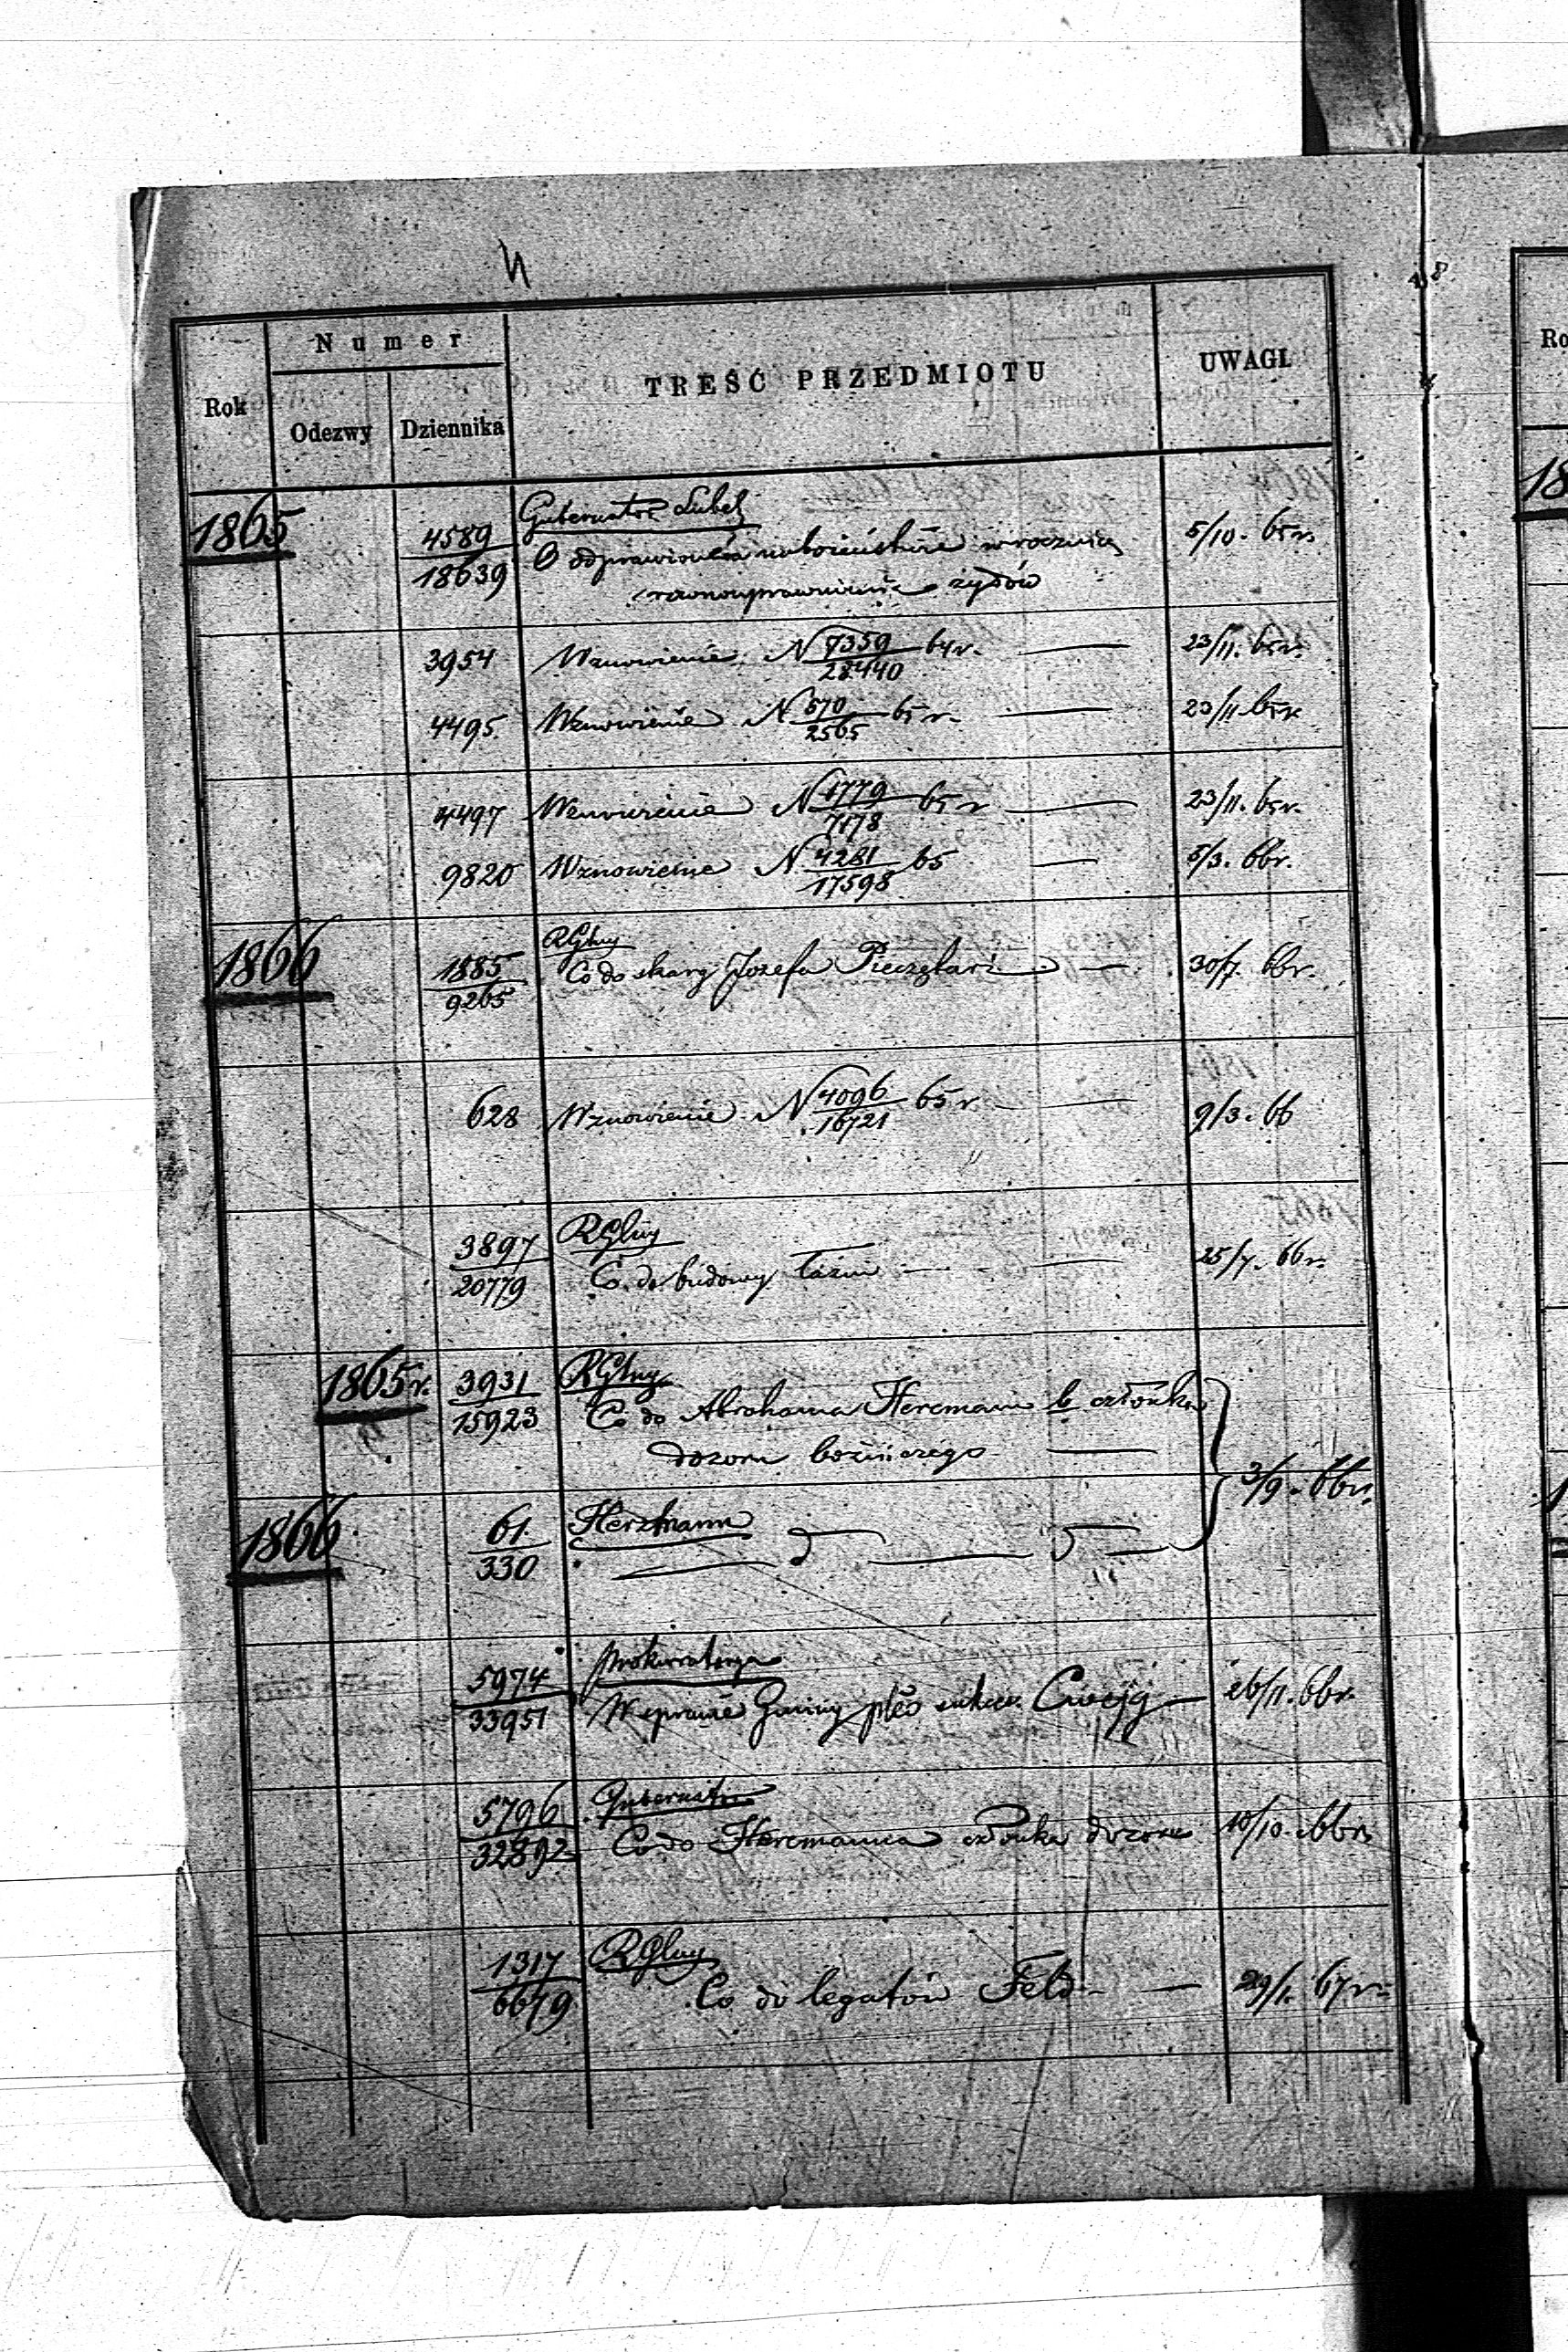 Numer
Rok Odezwy Dziennika TREŚĆ PRZEDMIOTU UWAGI
1865 4589/18639 Gubernator Lubel 5/10. 65 r.
O odprawieniu nabożeństwa w rocznicę
równouprawnienia żydów
3954 Wznowienie N 7359/28440 64 r. — 23/11. 65 r.
4495 Wznowienie N 570/2565 65 r. — 23/11 65 r.
4497 Wznowienie N 1779/7178 65 r — 23/11. 65 r.
9820 Wznowienie N 4281/17598 65 — 5/3. 66 r.
1866 1885/9265 RGlny
Co do skargi Jozefa Pieczętarz — 30/7. 66 r.
628 Wznowienie N 4096/16721 65 r — 9/3. 66
3897/20779 RGlny
Co do budowy Łaźni — 25/7. 66 r.
1865 r. 3931/15923 RGlny
Co do Abrahama Hercmana b. członka
dozoru bożniczego — 3/9. 66 r.
1866 61/330 Herzmann
5974/33951 Prokuratorya
W sprawie Gminy — 26/11. 66 r.
5796/32892 Gubernator
Co do Hercmanna członka dozoru 10/10. 66 r.
1317/6679 RGlny
Co do legatów Feld — 29/1. 67 r.